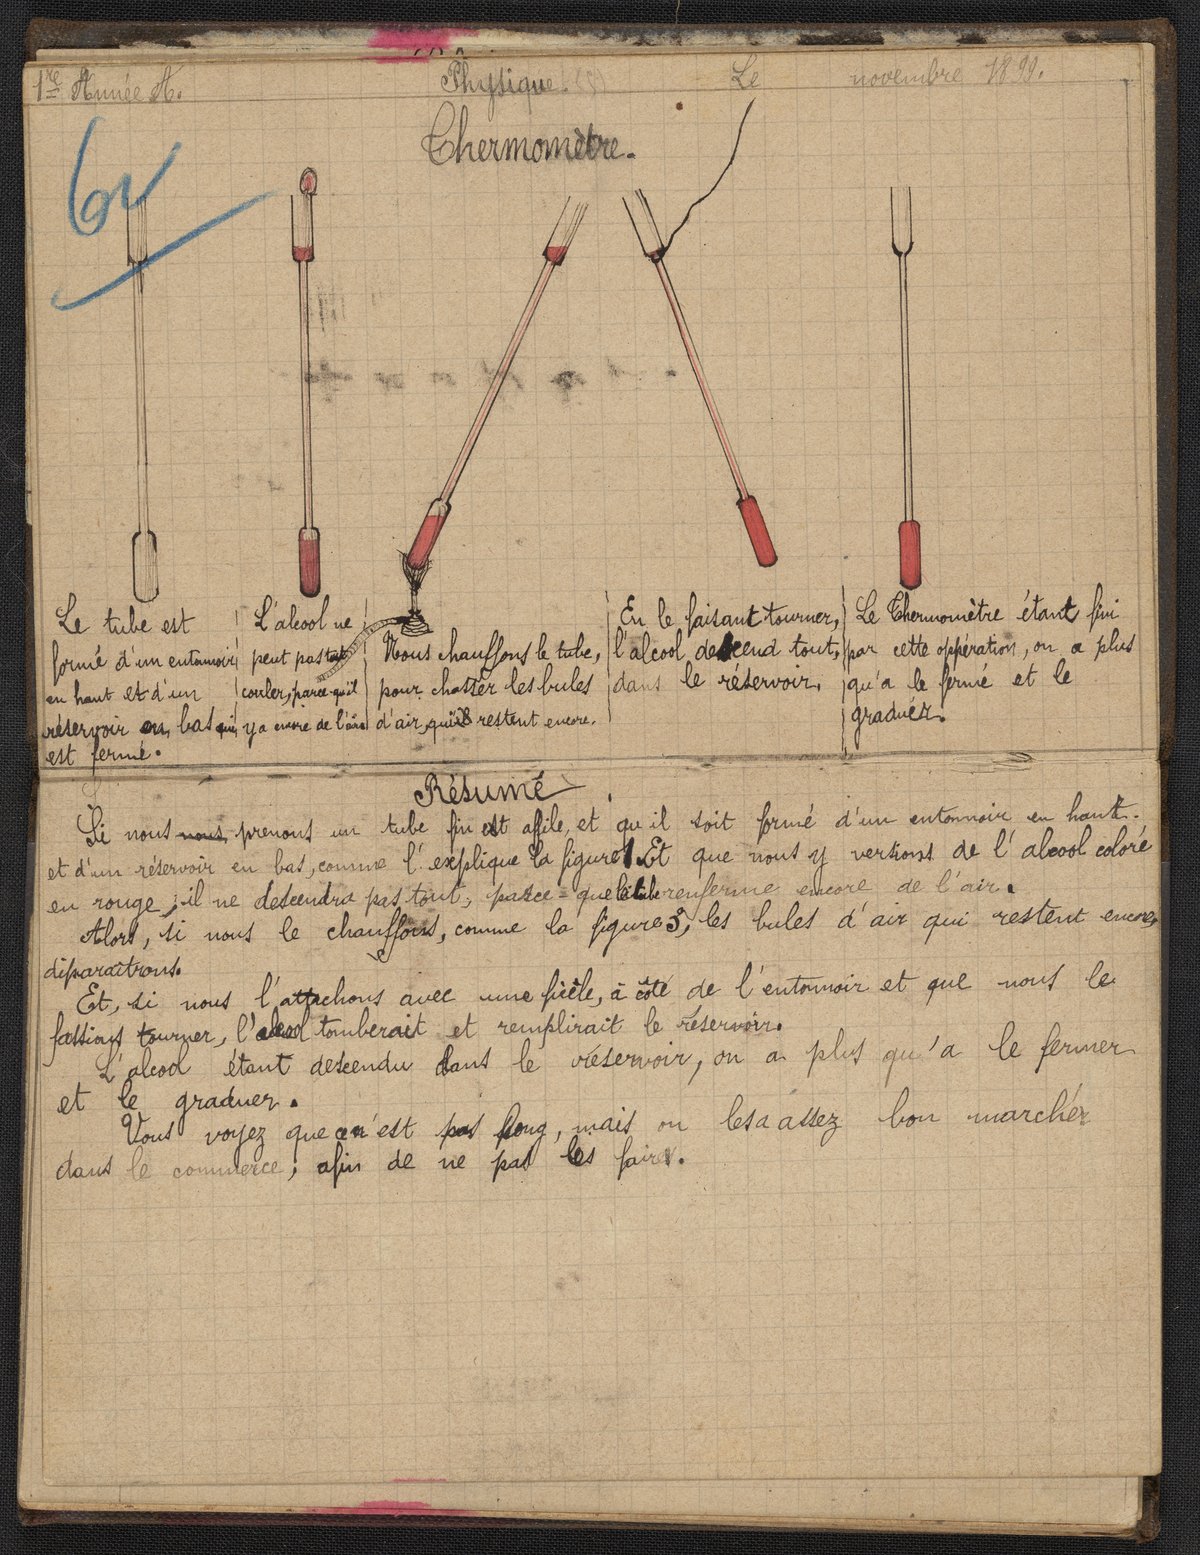 1re Année A.
Physique.
Le novembre 1899.
Thermomètre.
Le tube est
formé d'un entonnoir
en haut et d'un
réservoir en bas qui
est fermé.
L'alcool ne
peut pas tout
couler, parce qu'il
y a encore de l'air
Nous chauffons le tube,
pour chasser les bules
d'air, qui restent encore.
En le faisant tourner,
l'alcool descend tout,
dans le réservoir.
Le Thermomètre étant fini
par cette oppération, on a plus
qu'a le fermé et le
graduer.
Résumé
Si nous nous prenons un tube fin et affile, et qu'il soit formé d'un entonnoir en haut.
et d'un réservoir en bas, comme l'explique la figure 1. Et que nous y versions de l'alcool coloré
en rouge; il ne descendra pas tout, parce-que le tube renferme encore de l'air.
Alors, si nous le chauffons, comme la figure 3, les bules d'air qui restent encore,
diparaîtrons.
Et, si nous l'attachons avec une ficèle, à côté de l'entonnoir et que nous le
fassions tourner, l'alcool tomberait et remplirait le réservoir.
L'alcool étant descendu dans le réservoir, on a plus qu'a le fermer
et le graduer.
Vous voyez que n'est pas long, mais on les a assez bon marchér
dans le commerce; afin de ne pas les faire.